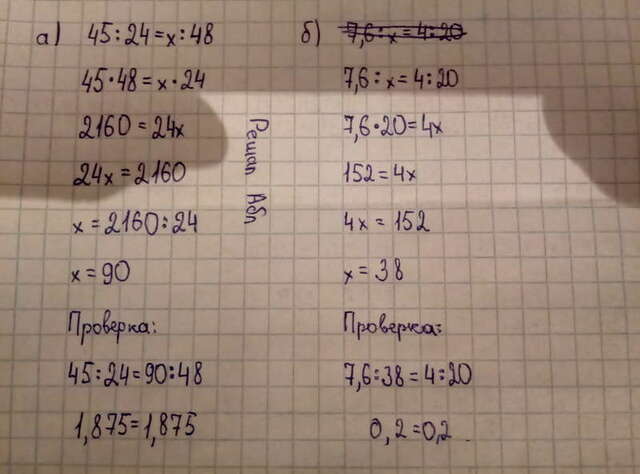 а) 45:24=х:48
45·48=х·24
2160=24х
24х=2160
х=2160:24
х=90
Проверка:
45:24=90:48
1,875=1,875
Решал Абл
б) 7,6:х=4:20
7,6:х=4:20
7,6·20=4х
152=4х
4х=152
х=38
Проверка:
7,6:38=4:20
0,2=0,2